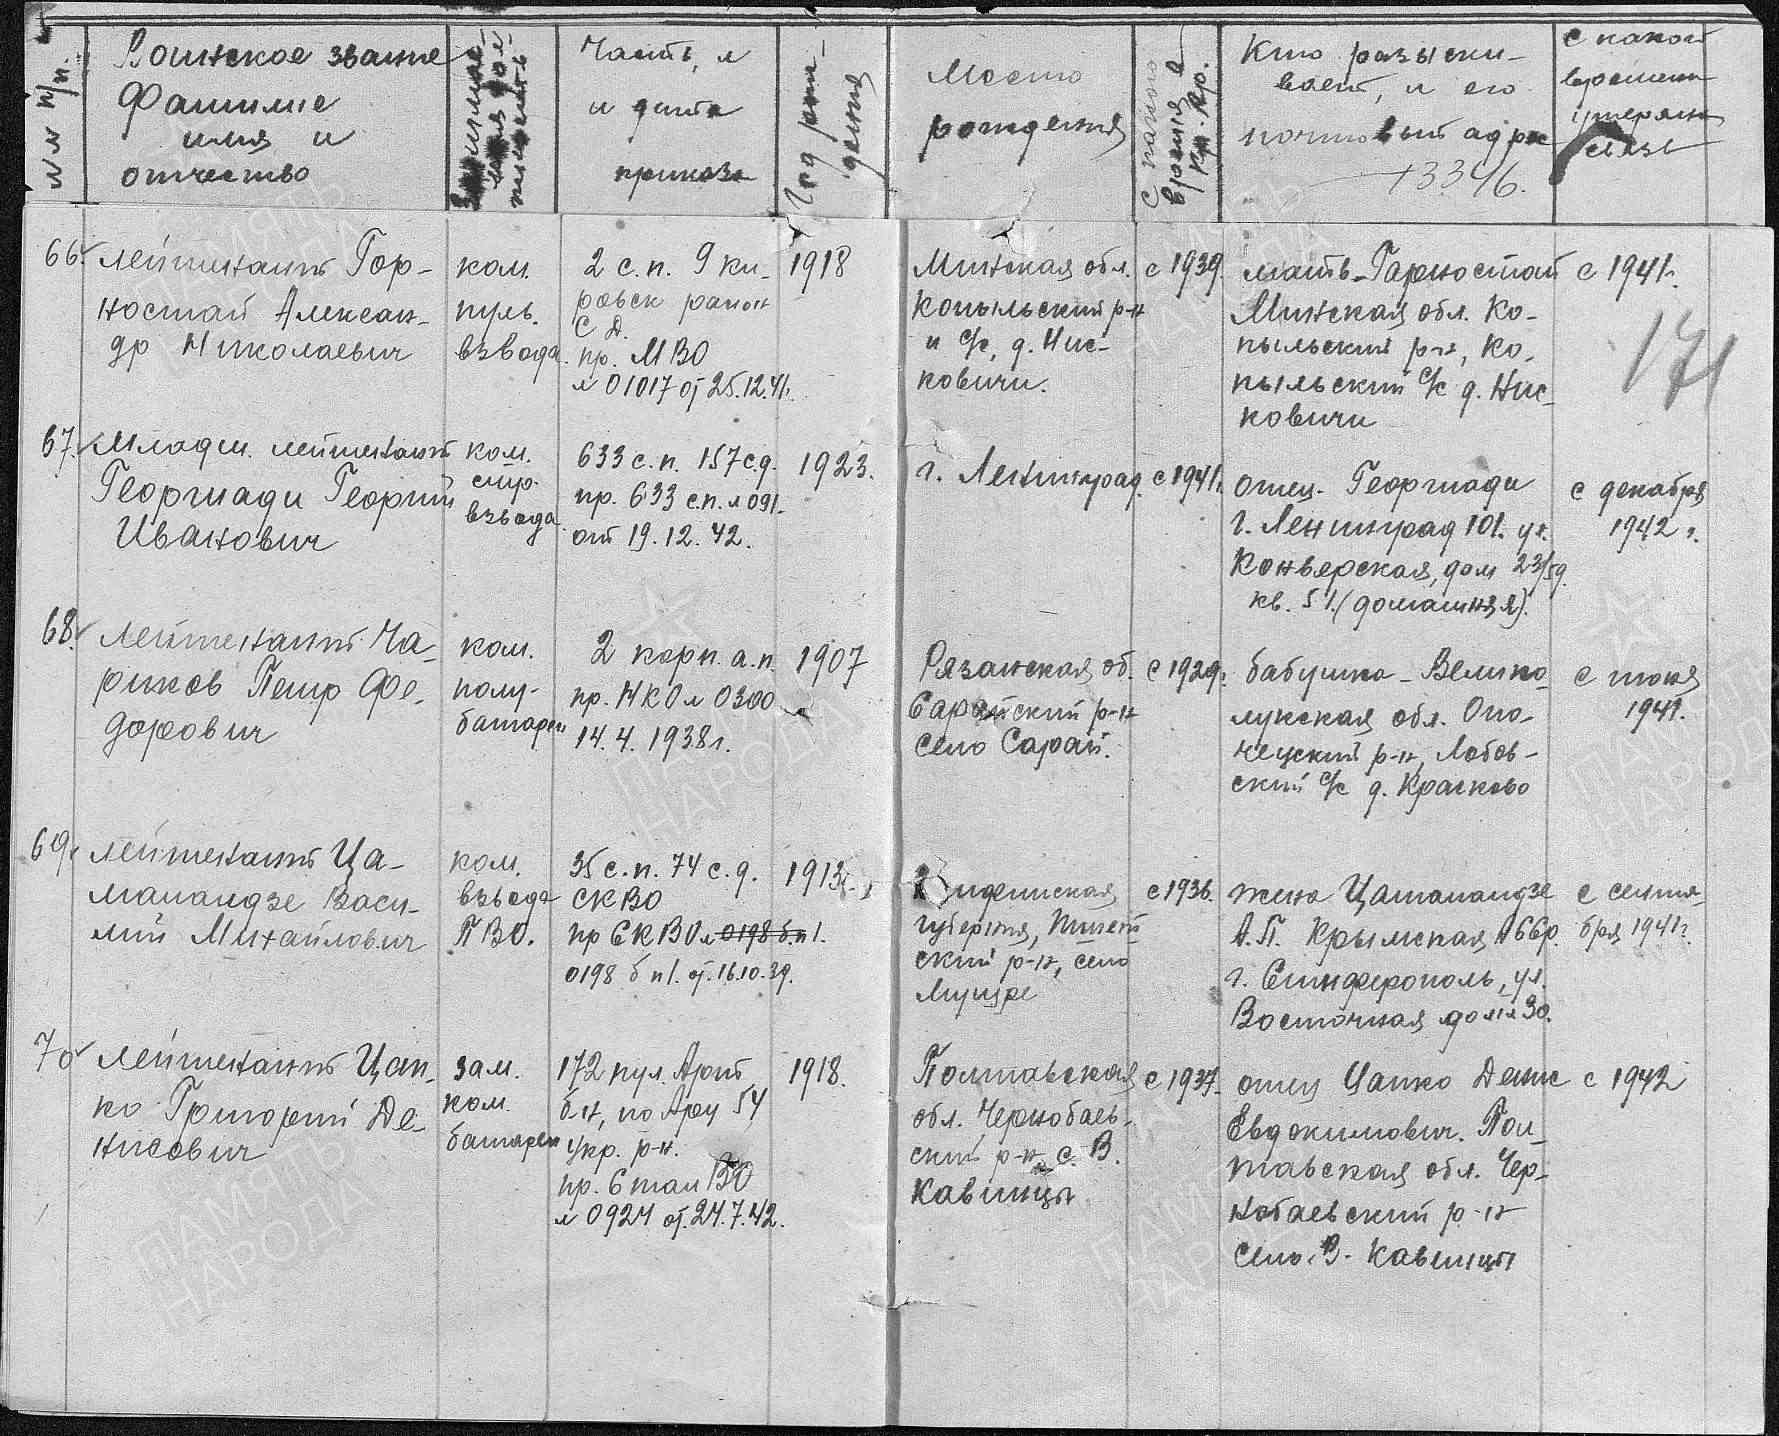 №№ п/п.
Воинское звание
Фамилие
имя и
отчество
Часть, №
и дата
приказа
Год рож-
дения
Место
рождения
С какого
времени в
Кр. Ар.
Кто разыски-
вает, и его
почтовый адрес
13346.
с какого
времени
утеряна
связь
66. лейтенант Гор-
ностай Алексан-
др Николаевич
ком.
пуль.
взвода.
2 с.п. 9 ки-
ровск район
С Д.
пр. МВО
№ 01017 от 25.12.41г.
1918
Минская обл.
Копыльский р-н
и с/с, д. Нис-
ковичи.
с 1939.
мать-Гарностай
Минская обл. Ко-
пыльский р-н, Ко-
пыльский с/с д. Нис-
ковичи
с 1941г.
171
67. Младш. лейтенант
Георгиади Георгий
Иванович
ком.
стр.
взвода.
633 с.п. 157 с.д.
пр. 633 с.п. № 091.
от 19.12.42.
1923.
г. Ленинград.
с 1941г.
отец-Георгиади
г. Ленинград 101. ул.
Конверская, дом 23/59.
кв. 51. (домашняя).
с декабря
1942 г.
68. Лейтенант Ча-
риков Петр Фе-
дорович
ком.
полу-
батареи
2 корп. а.п.
пр. НКО № 0300
14.4.1938г.
1907
Рязанская об.
Сарайский р-н
село Сарай.
с 1929г.
бабушка-Велико-
лукская обл. Опо-
чецкий р-н, Лобов-
ский с/с д. Крачково
с июня
1941.
69. лейтенант Ца-
маландзе Васи-
лий Михайлович
ком.
взвода
ПВО.
35 с.п. 74 с.д.
СКВО
пр СКВО № 0198 б.п1.
0198 б п1. от. 16.10.39.
1913г.
губерния,
ский р-н, село
с 1936.
жена Цамаландзе
А.П. Крымская АССР.
г. Симферополь, ул.
Восточная дом № 30.
с сентя-
бря 1941г.
70 лейтенант Цап-
ко Григорий Де-
нисович
зам.
ком.
батареи
172 пул. Арт
б-н, по Ару 54
укр. р-н.
пр. Стал ВО
№ 0924 от. 24.7.42.
1918.
Полтавская
обл. Чернобаев-
ский р-н, с. В.
Кавинцы
с 1937.
отец Цапко Денис
Евдокимович. Пол-
тавская обл. Чер-
нобаевский р-н
село. В. Кавинцы
с 1942